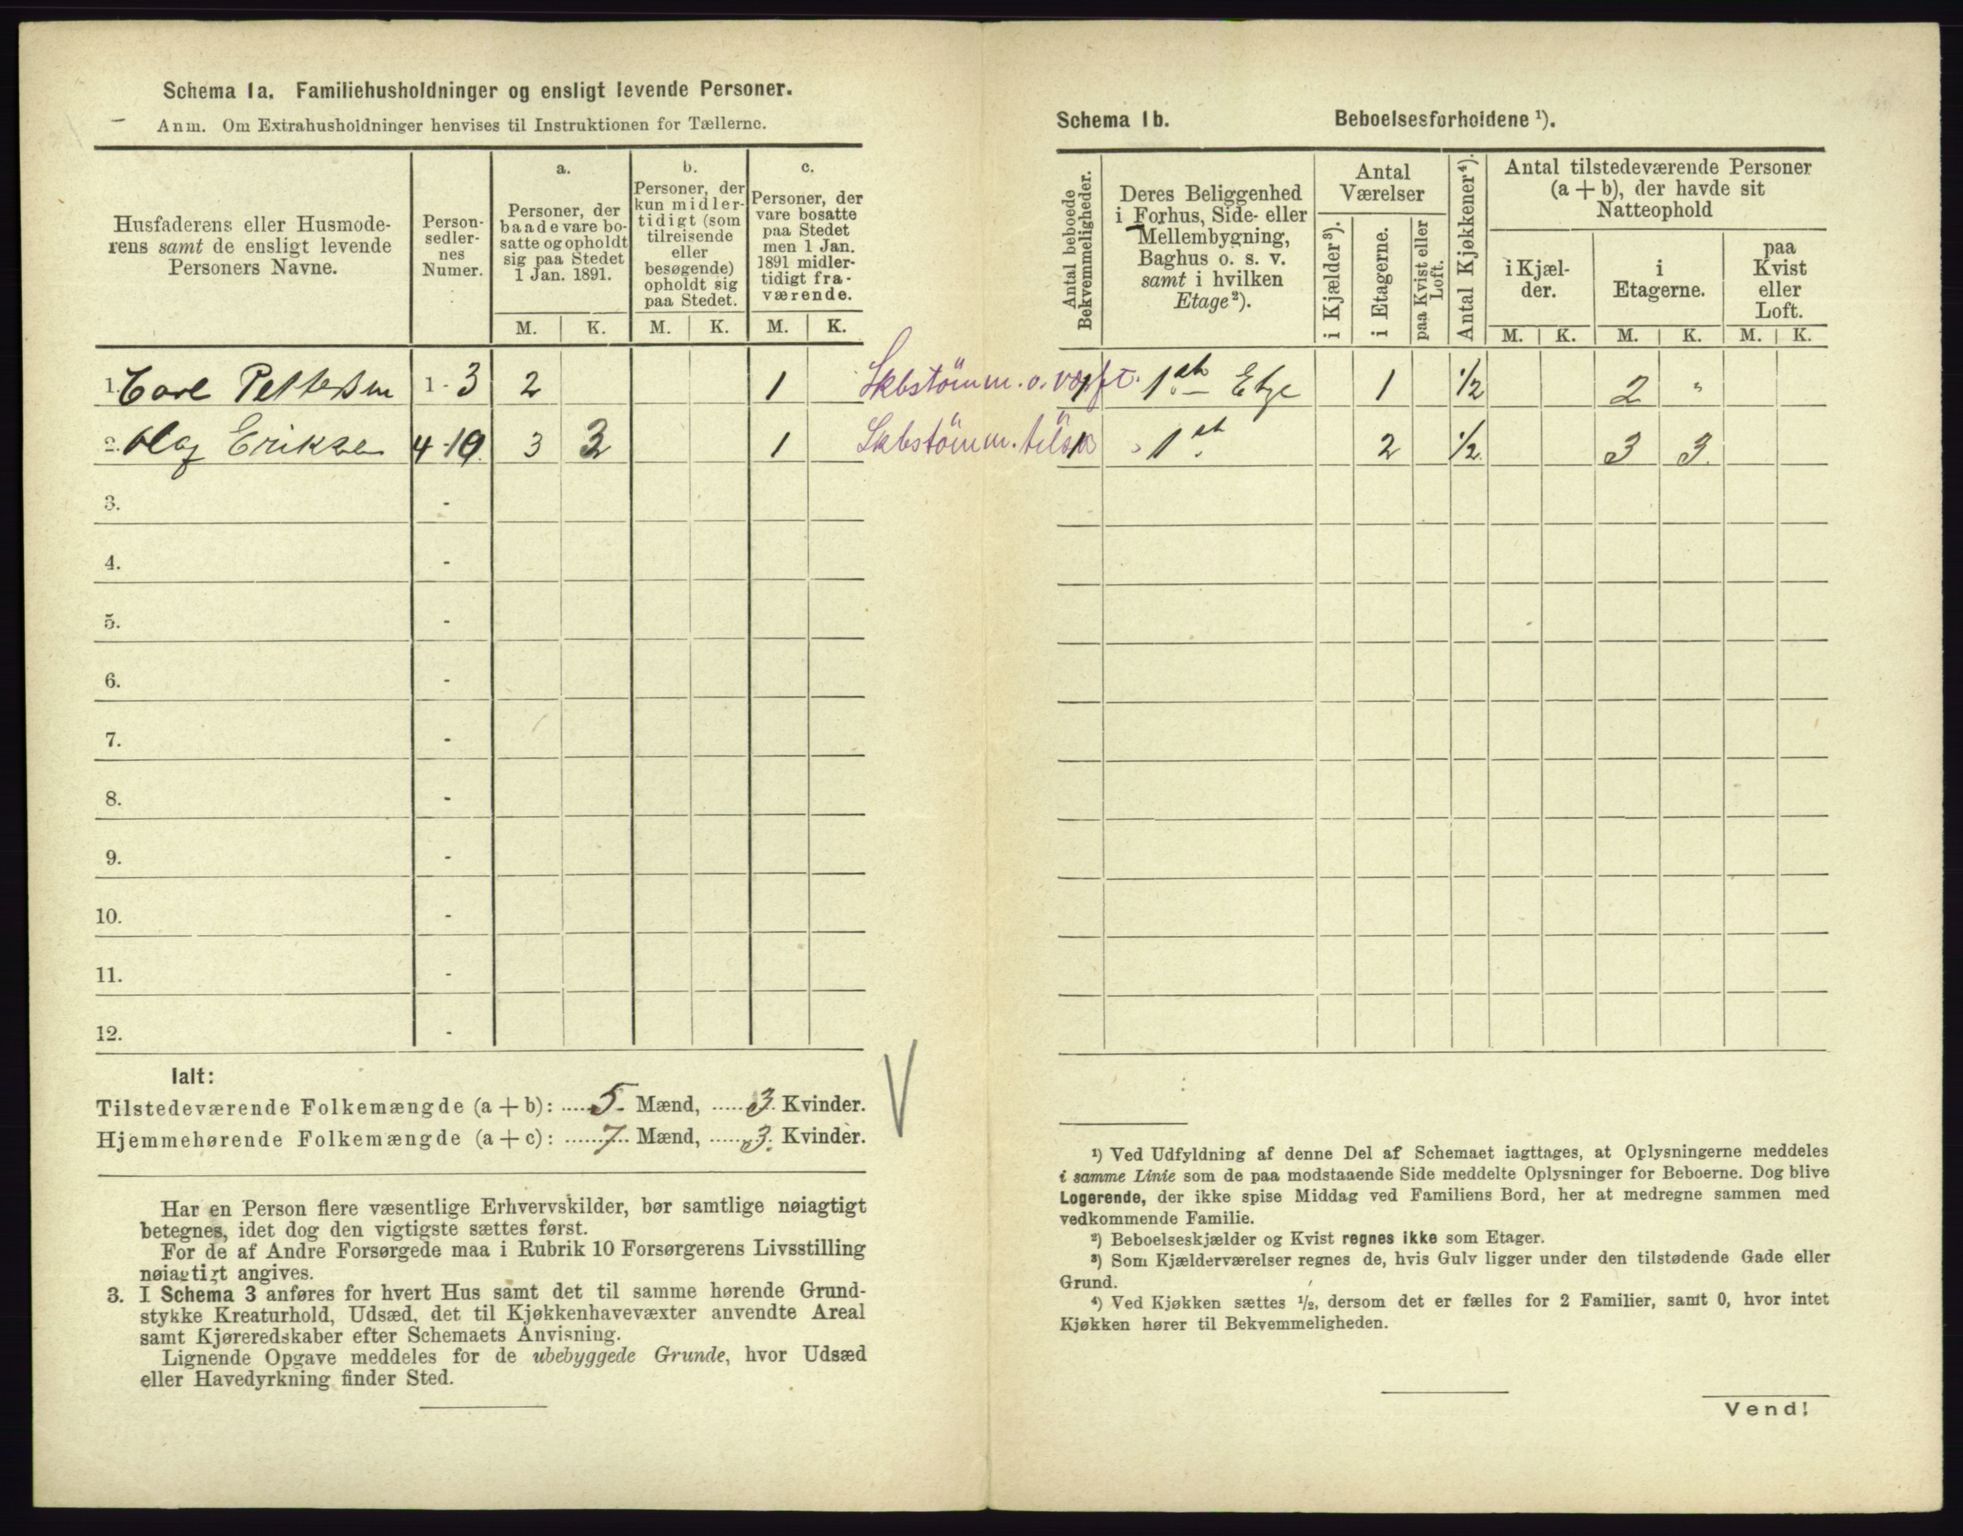 Schema 1a. Familiehusholdninger og ensligt levende Personer.
Anm. Om Extrahusholdninger henvises til Instruktionen for Tællerne.
Husfaderens eller Husmode-
rens samt de ensligt levende
Personers Navne.
Person-
sedler-
nes
Numer.
a.
Personer, der
baade vare bo-
satte og opholdt
sig paa Stedet
1 Jan. 1891.
b.
Personer, der
kun midler-
tidigt (som
tilreisende
eller
besøgende)
opholdt sig
paa Stedet.
c.
Personer, der
vare bosatte
paa Stedet
men 1 Jan.
1891 midler-
tidigt fra-
værende.
M. K. M. K. M. K.
1. Carl Pettersen 1 - 3 2 1 Skbstömm. o. værft.
2. Olaf Eriksen 4 - 10 3 3 1 Skbstömm.
3. -
4. -
5. -
6. -
7. -
8. -
9. -
10. -
11. -
12. -
Ialt:
Tilstedeværende Folkemængde (a + b): 5 Mænd, 3 Kvinder.
Hjemmehørende Folkemængde (a + c): 7 Mænd, 3 Kvinder.
Har en Person flere væsentlige Erhvervskilder, bør samtlige nøiagtigt
betegnes, idet dog den vigtigste sættes først.
For de af Andre Forsørgede maa i Rubrik 10 Forsørgerens Livsstilling
nøiagtigt angives.
3. I Schema 3 anføres for hvert Hus samt det til samme hørende Grund-
stykke Kreaturhold, Udsæd, det til Kjøkkenhavevæxter anvendte Areal
samt Kjøreredskaber efter Schemaets Anvisning.
Lignende Opgave meddeles for de ubebyggede Grunde, hvor Udsæd
eller Havedyrkning finder Sted.
Schema 1b. Beboelsesforholdene ¹).
Antal beboede
Bekvemmeligheder.
Deres Beliggenhed
i Forhus, Side- eller
Mellembygning,
Baghus o. s. v.
samt i hvilken
Etage²).
Antal
Værelser
i Kjælder³).
i Etagerne.
paa Kvist eller
Loft.
Antal Kjøkkener⁴).
Antal tilstedeværende Personer
(a + b), der havde sit
Natteophold
i Kjæl-
der.
i
Etagerne.
paa
Kvist
eller
Loft.
M. K. M. K. M. K.
1 1ste Etge 1 1/2 2 "
1 " 1ste 2 1/2 3 3
¹) Ved Udfyldning af denne Del af Schemaet iagttages, at Oplysningerne meddeles
i samme Linie som de paa modstaaende Side meddelte Oplysninger for Beboerne. Dog blive
Logerende, der ikke spise Middag ved Familiens Bord, her at medregne sammen med
vedkommende Familie.
²) Beboelseskjælder og Kvist regnes ikke som Etager.
³) Som Kjælderværelser regnes de, hvis Gulv ligger under den tilstødende Gade eller
Grund.
⁴) Ved Kjøkken sættes ½, dersom det er fælles for 2 Familier, samt 0, hvor intet
Kjøkken hører til Bekvemmeligheden.
Vend!